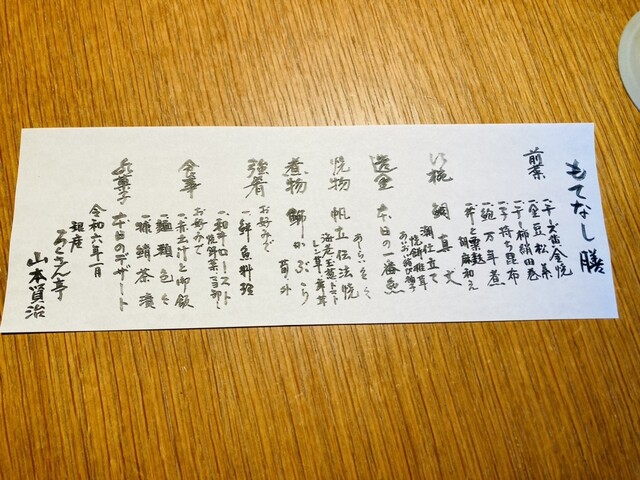 もてなし膳
前菜
一、干支黄金焼
一、座豆松葉
一、干し柿絹田巻
一、子持ち昆布
一、鮑万年煮
一、芹と粟麩
胡麻和え
吸椀 鯛真丈
潮仕立て
焼餅 椎茸
造里 本日の一番魚
あしらいそえて
焼物 帆立伝法焼
海老玉葱トマト
レンコン 舞茸
煮物 鰤かぶら
菊の外
強肴 お好みで
一、鮮魚料理
一、和牛ロースト
焼野菜
食事 お好みで
一、赤出汁と御飯
一、麺類色々
一、糠鯖茶漬
水菓子 本日のデザート
令和六年一月
銀座
ろくさん亭
山本賢治